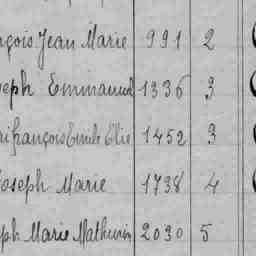 nçois Jean Marie 991 2
seph Emmanuel 1336 3
rifrançois Emile Elie 1452 3
Joseph Marie 1738 4
eph Marie Mathurin 2030 5